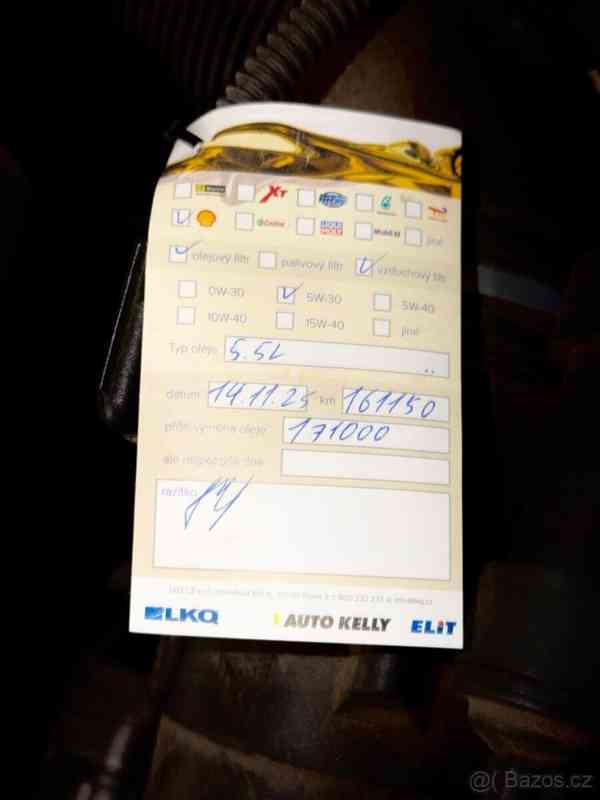 XT
Castrol LIQUI MOLY Mobil 1 jiné
olejový filtr palivový filtr vzduchový filtr
0W-30 5W-30 5W-40
10W-40 15W-40 jiné
Typ oleje 5.5L
datum 14.11.25 km 161150
příští výměna oleje 171000
ale nejpozději dne
razítko
LKQ AUTO KELLY ELIT
@( Bazos.cz